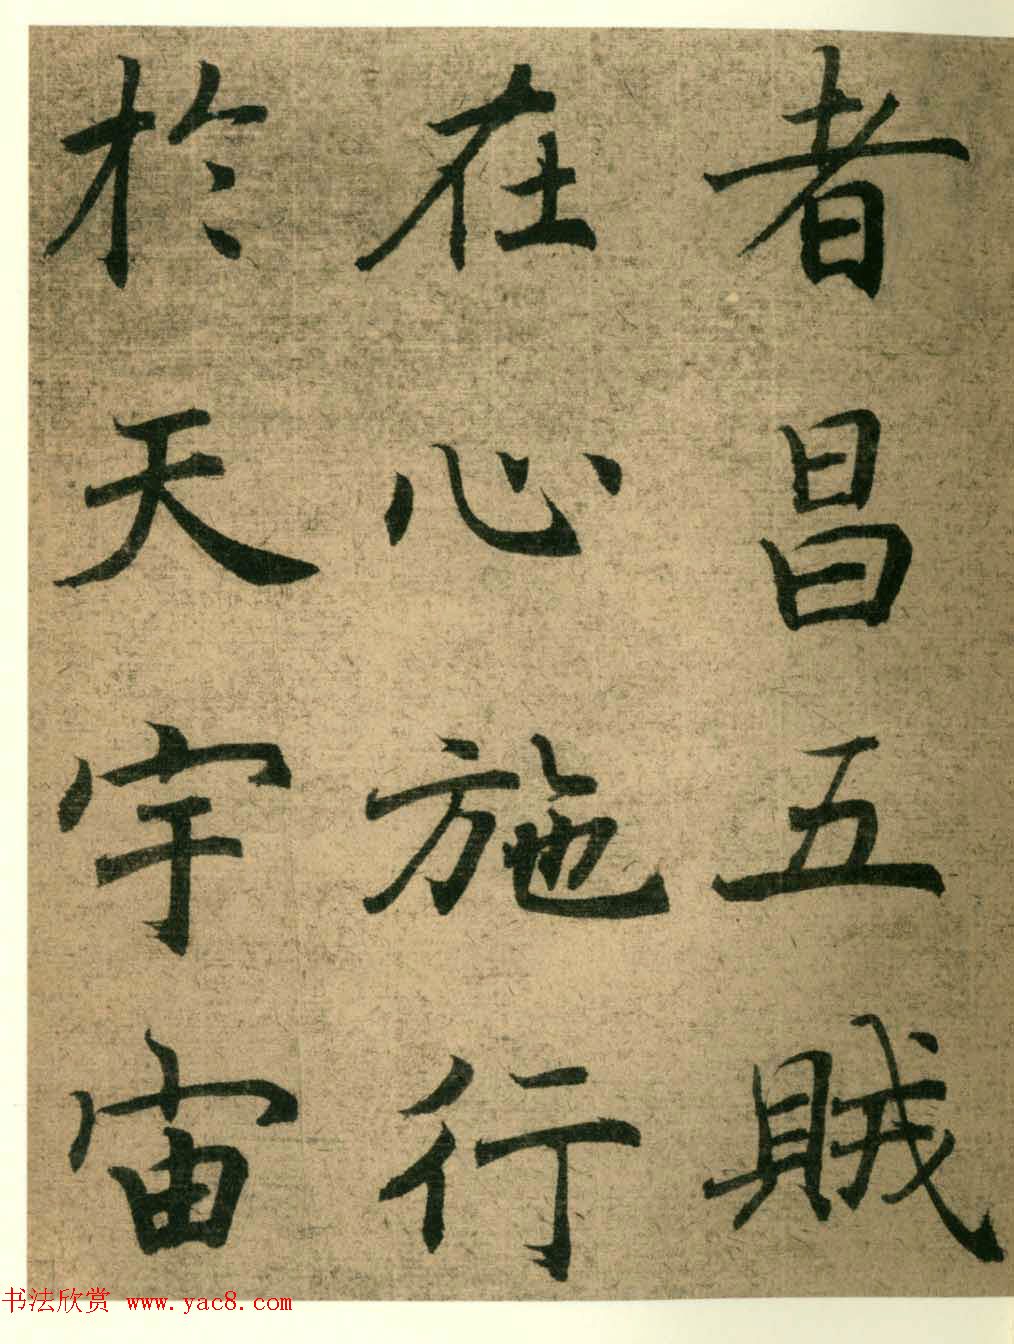 者昌五賊
在心施行
於天宇宙
书法欣赏 www.yac8.com